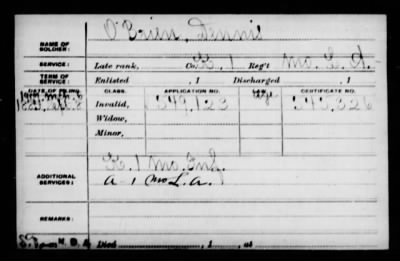 O'Brien, Dennis
NAME OF SOLDIER:
SERVICE: Late rank, Co. K. 1 Reg't Mo. L. A.
TERM OF SERVICE: Enlisted , 1 Discharged , 1
DATE OF FILING. CLASS. APPLICATION NO. LAW. CERTIFICATE NO.
Invalid, 549,123 343,326
Widow,
Minor,
ADDITIONAL SERVICES: K. 1 Mo. Eng.
A - 1 Mo L. A.
REMARKS:
Died , 1 , at